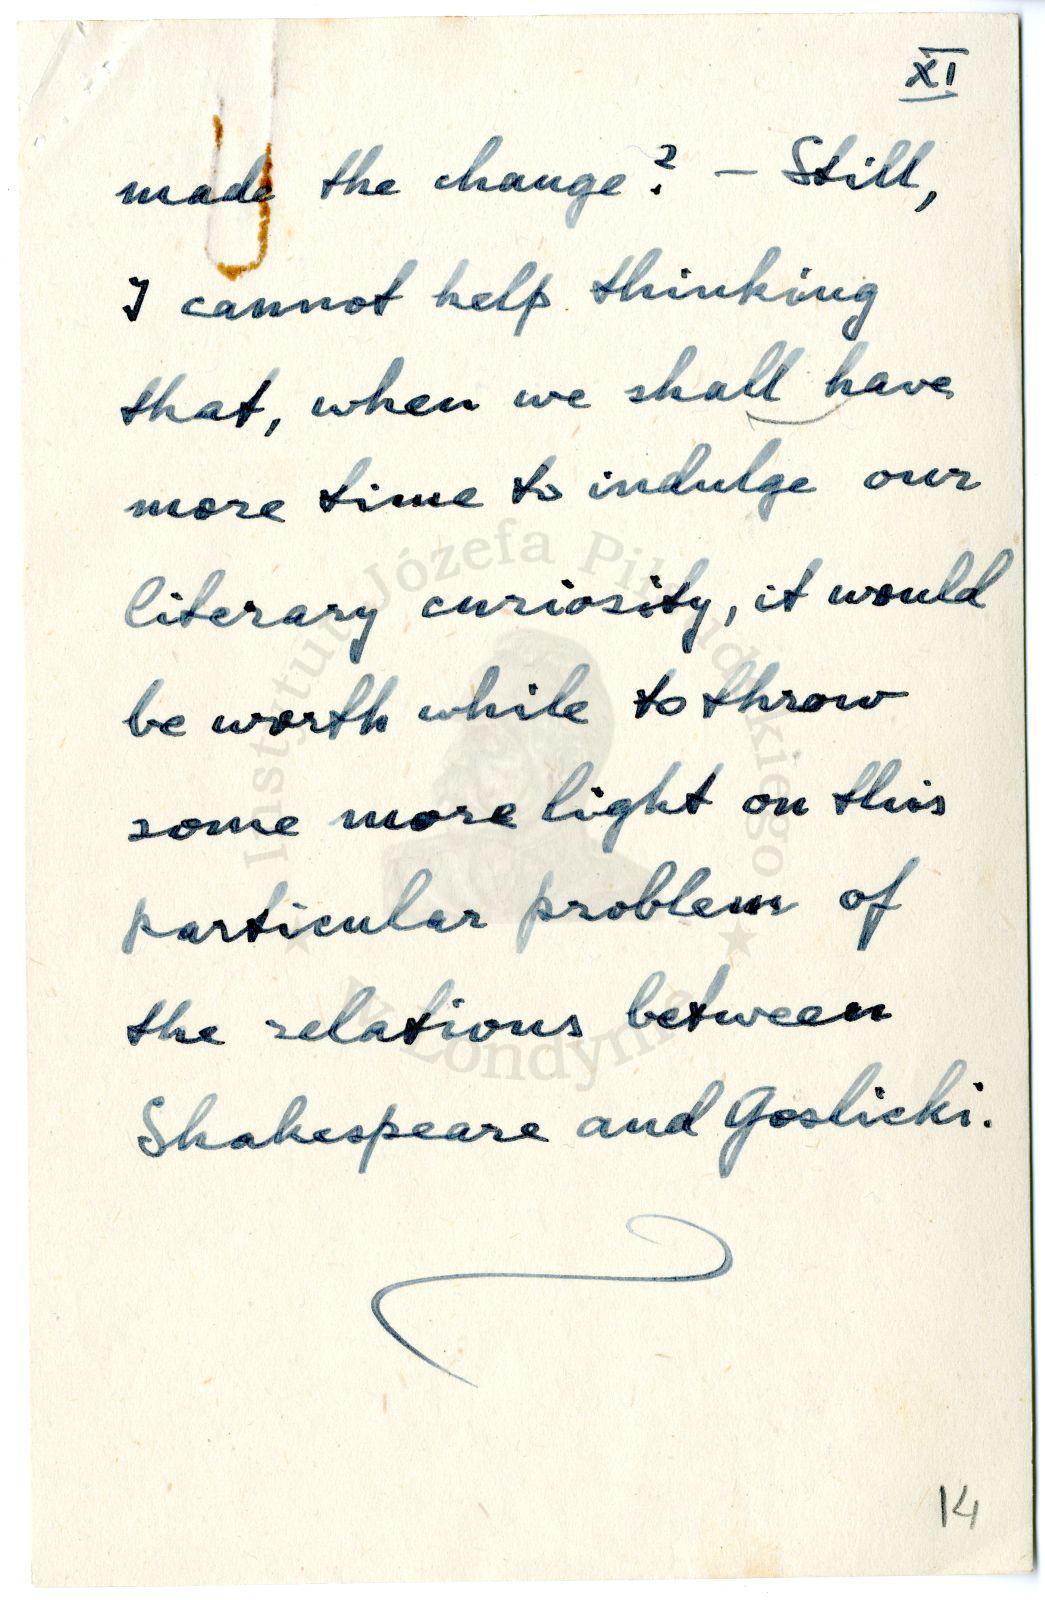 XI
made the change? – Still,
I cannot help thinking
that, when we shall have
more time to indulge our
literary curiosity, it would
be worth while to throw
some more light on this
particular problem of
the relations between
Shakespeare and Goslicki.
14
Instytut Józefa Piłsudskiego
w Londynie